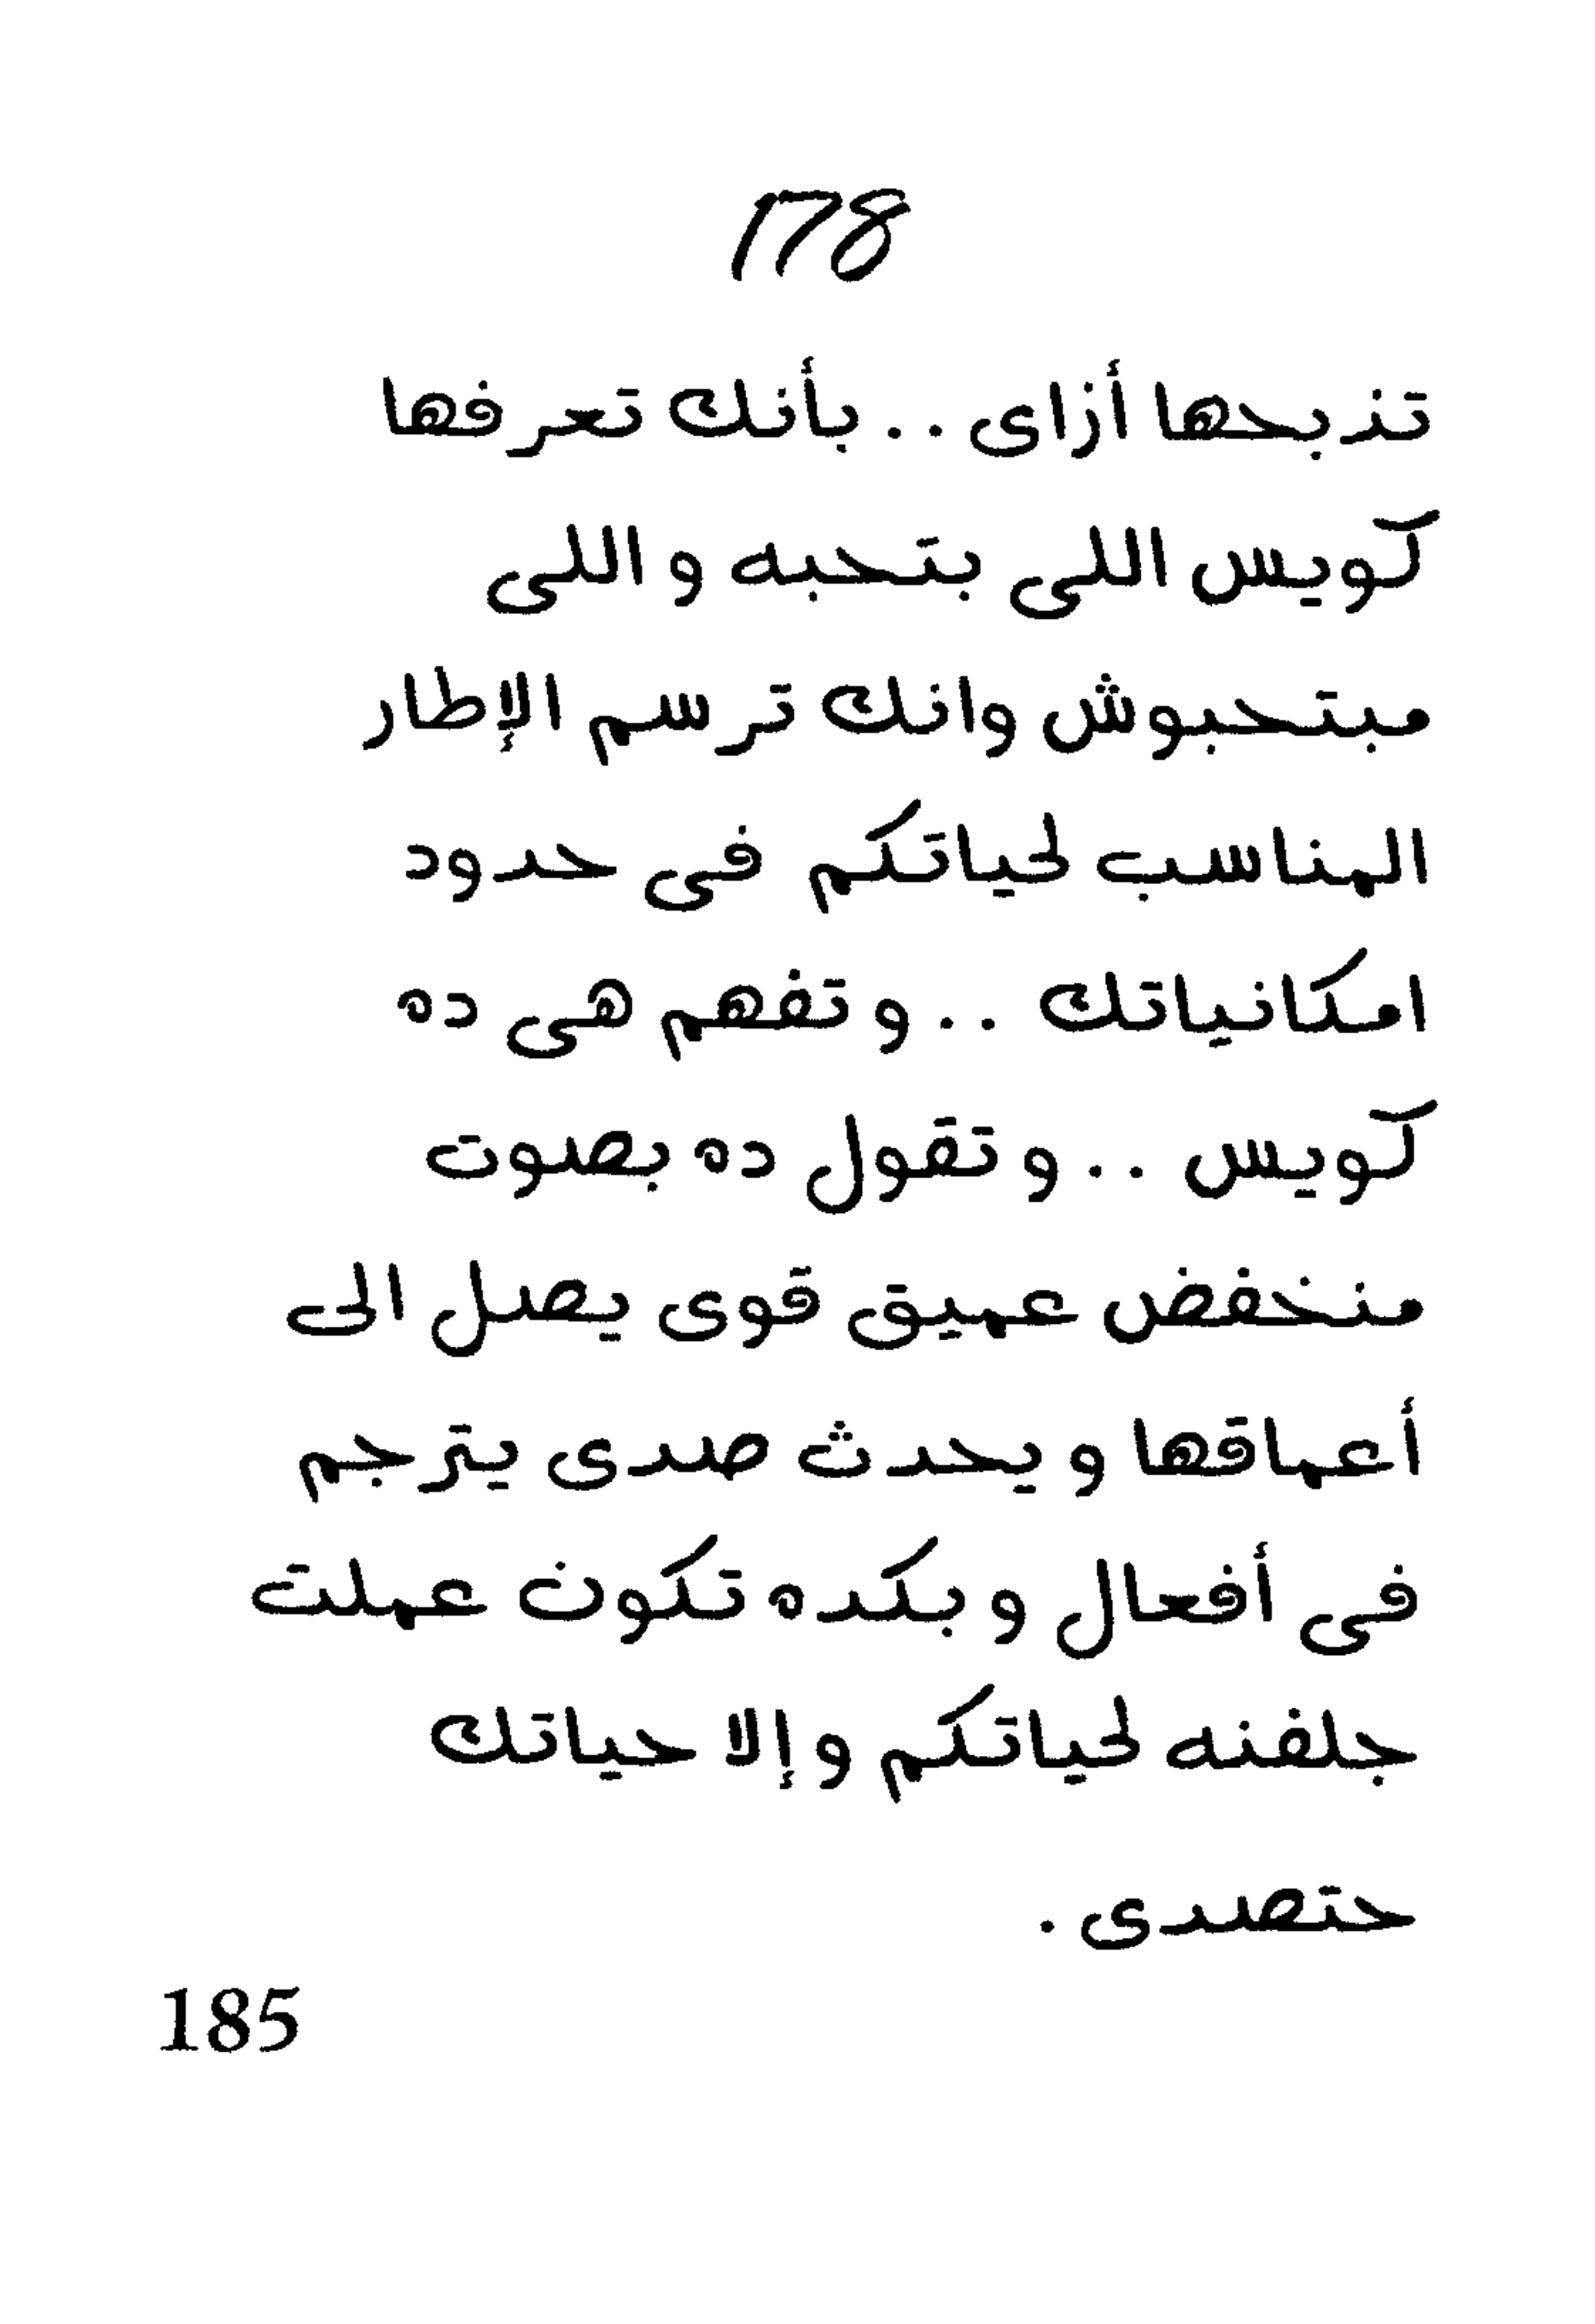 178
تذبحها أزاى .. بأنك تعرفها
كويس اللى بتحبه و اللى
مبتحبوش وانك ترسم الإطار
المناسب لحياتكم فى حدود
امكانياتك .. و تفهم هى ده
كويس .. و تقول ده بصوت
منخفض عميق قوى يصل الى
أعماقها و يحدث صدى يترجم
فى أفعال و بكده تكون عملت
جلفنه لحياتكم و إلا حياتك
حتصدى .
185